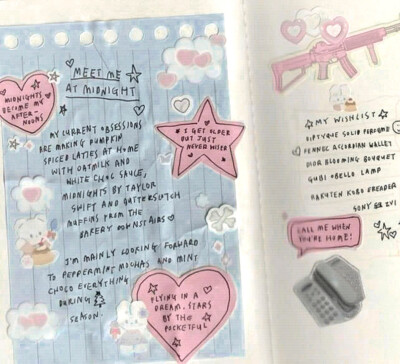 MEET ME
AT MIDNIGHT
MIDNIGHTS
BECOME MY
AFTER-
NOONS
MY CURRENT OBSESSIONS
ARE MAKING PUMPKIN
SPICED LATTES AT HOME
WITH OATMILK AND
WHITE CHOC SAUCE,
MIDNIGHTS BY TAYLOR
SWIFT AND BUTTERSCOTCH
MUFFINS FROM THE
BAKERY DOWNSTAIRS
I'M MAINLY LOOKING FORWARD
TO PEPPERMINT MOCHAS AND MINT
CHOCO EVERYTHING
DURING
SEASON.
I GET OLDER
BUT JUST
NEVER WISER
FLYING IN A
DREAM, STARS
BY THE
POCKETFUL
MY WISHLIST
DIPTYQUE SOLID PERFUME
FENNEC ACCORDIAN WALLET
DIOR BLOOMING BOUQUET
GUBI OBELLO LAMP
RAKUTEN KOBO EREADER
SONY ZV1
CALL ME WHEN
YOU'RE HOME!